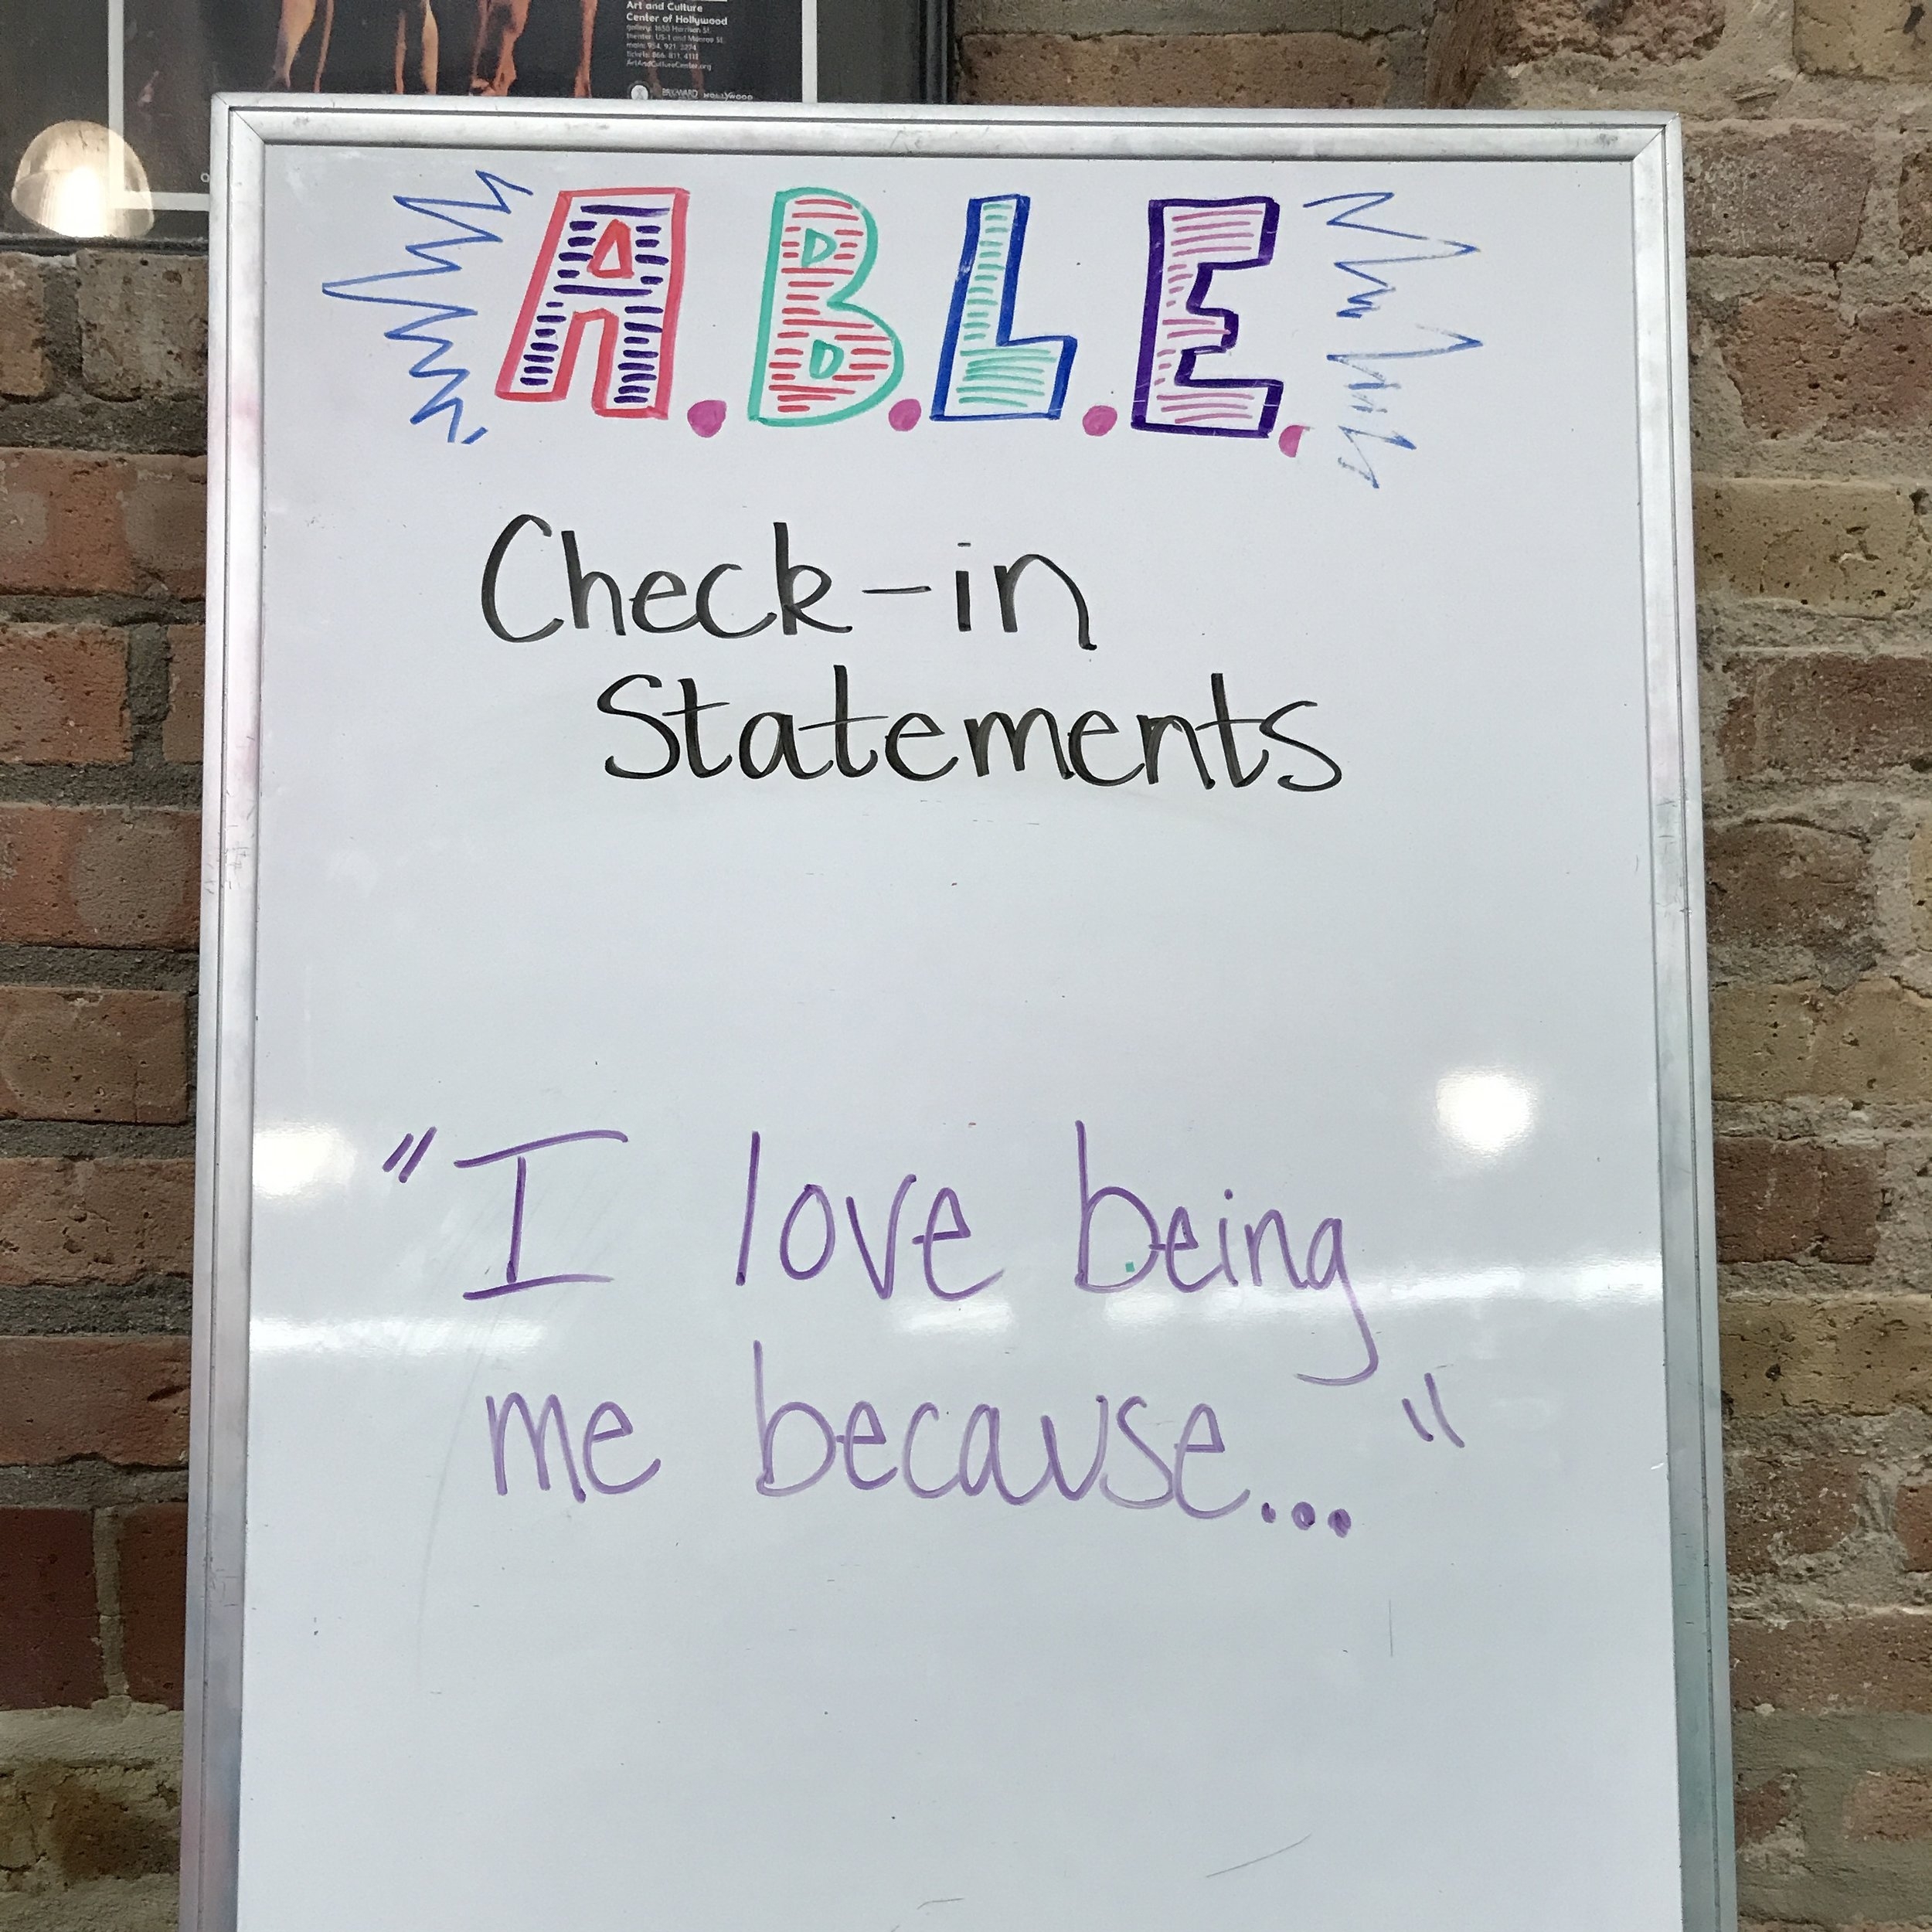 Art and Culture
Center of Hollywood
gallery: 1650 Harrison St.
theater: US-1 and Monroe St.
main: 954. 921. 3274
tickets: 866. 811. 4111
ArtAndCultureCenter.org
BROWARD HOLLYWOOD
A.B.L.E.
Check-in
Statements
"I love being
me because..."